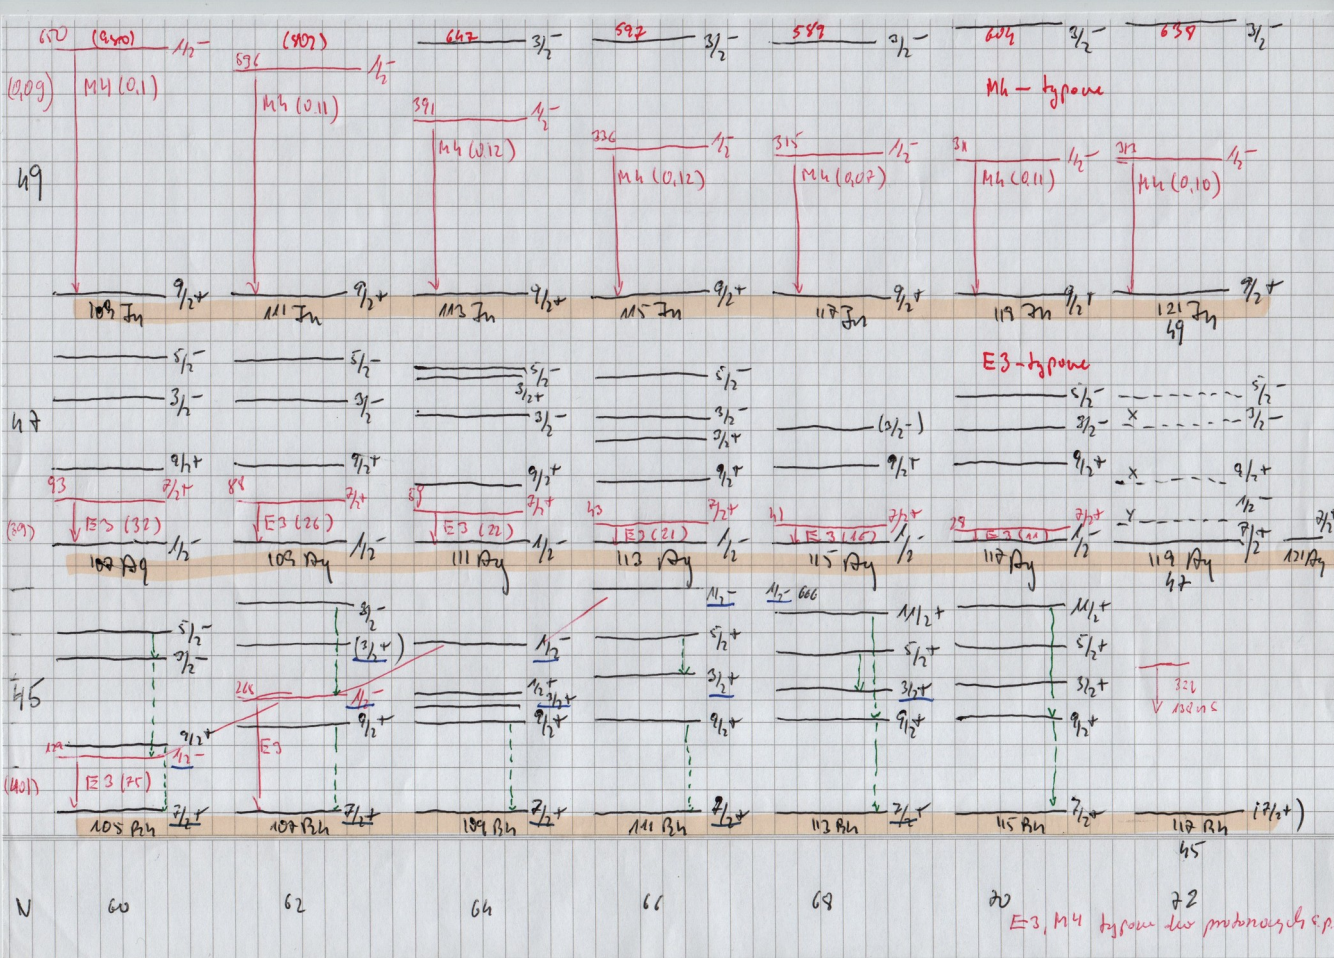 650 (980) 1/2-
536 (802) 1/2-
647 3/2-
597 3/2-
589 3/2-
604 3/2-
638 3/2-
(0,09) M4 (0,1)
M4 (0,11)
391 1/2-
M4 (0,12)
336 1/2-
M4 (0,12)
315 1/2-
M4 (0,07)
M4 - typowe
311 1/2-
M4 (0,11)
313 1/2-
M4 (0,10)
49
9/2+ 9/2+ 9/2+ 9/2+ 9/2+ 9/2+ 9/2+
109 In 111 In 113 In 115 In 117 In 119 In 121 In
49
E3 - typowe
5/2- 5/2- 5/2- 5/2- 5/2- 5/2-
3/2+
3/2- 3/2- 3/2- 3/2- (3/2-) 3/2- x 3/2-
3/2+
47
9/2+ 9/2+ 9/2+ 9/2+ 9/2+ 9/2+ x 9/2+
93 7/2+ 88 7/2+ 7/2+ 43 7/2+ 41 7/2+ 28 7/2+ Y 1/2-
(39) E3 (32) E3 (26) E3 (22) E3 (21) E3 (16) E3 (11)
1/2- 1/2- 1/2- 1/2- 1/2- 1/2- 7/2+ 7/2+
107 Ag 109 Ag 111 Ag 113 Ag 115 Ag 117 Ag 119 Ag 121 Ag
47
3/2- 1/2- 1/2- 666 11/2+ 11/2+
5/2- (3/2+) 1/2- 5/2+ 5/2+ 5/2+
3/2-
45
268 1/2- 1/2+ 3/2+ 3/2+ 3/2+ 3/2+ 321
9/2+ 9/2+ 9/2+ 9/2+ 9/2+ 9/2+ 138 ns
129 1/2- E3
(401) E3 (75)
7/2+ 7/2+ 7/2+ 7/2+ 7/2+ 7/2+ (7/2+)
105 Rh 107 Rh 109 Rh 111 Rh 113 Rh 115 Rh 117 Rh
45
N 60 62 64 66 68 70 72
E3, M4 typowe